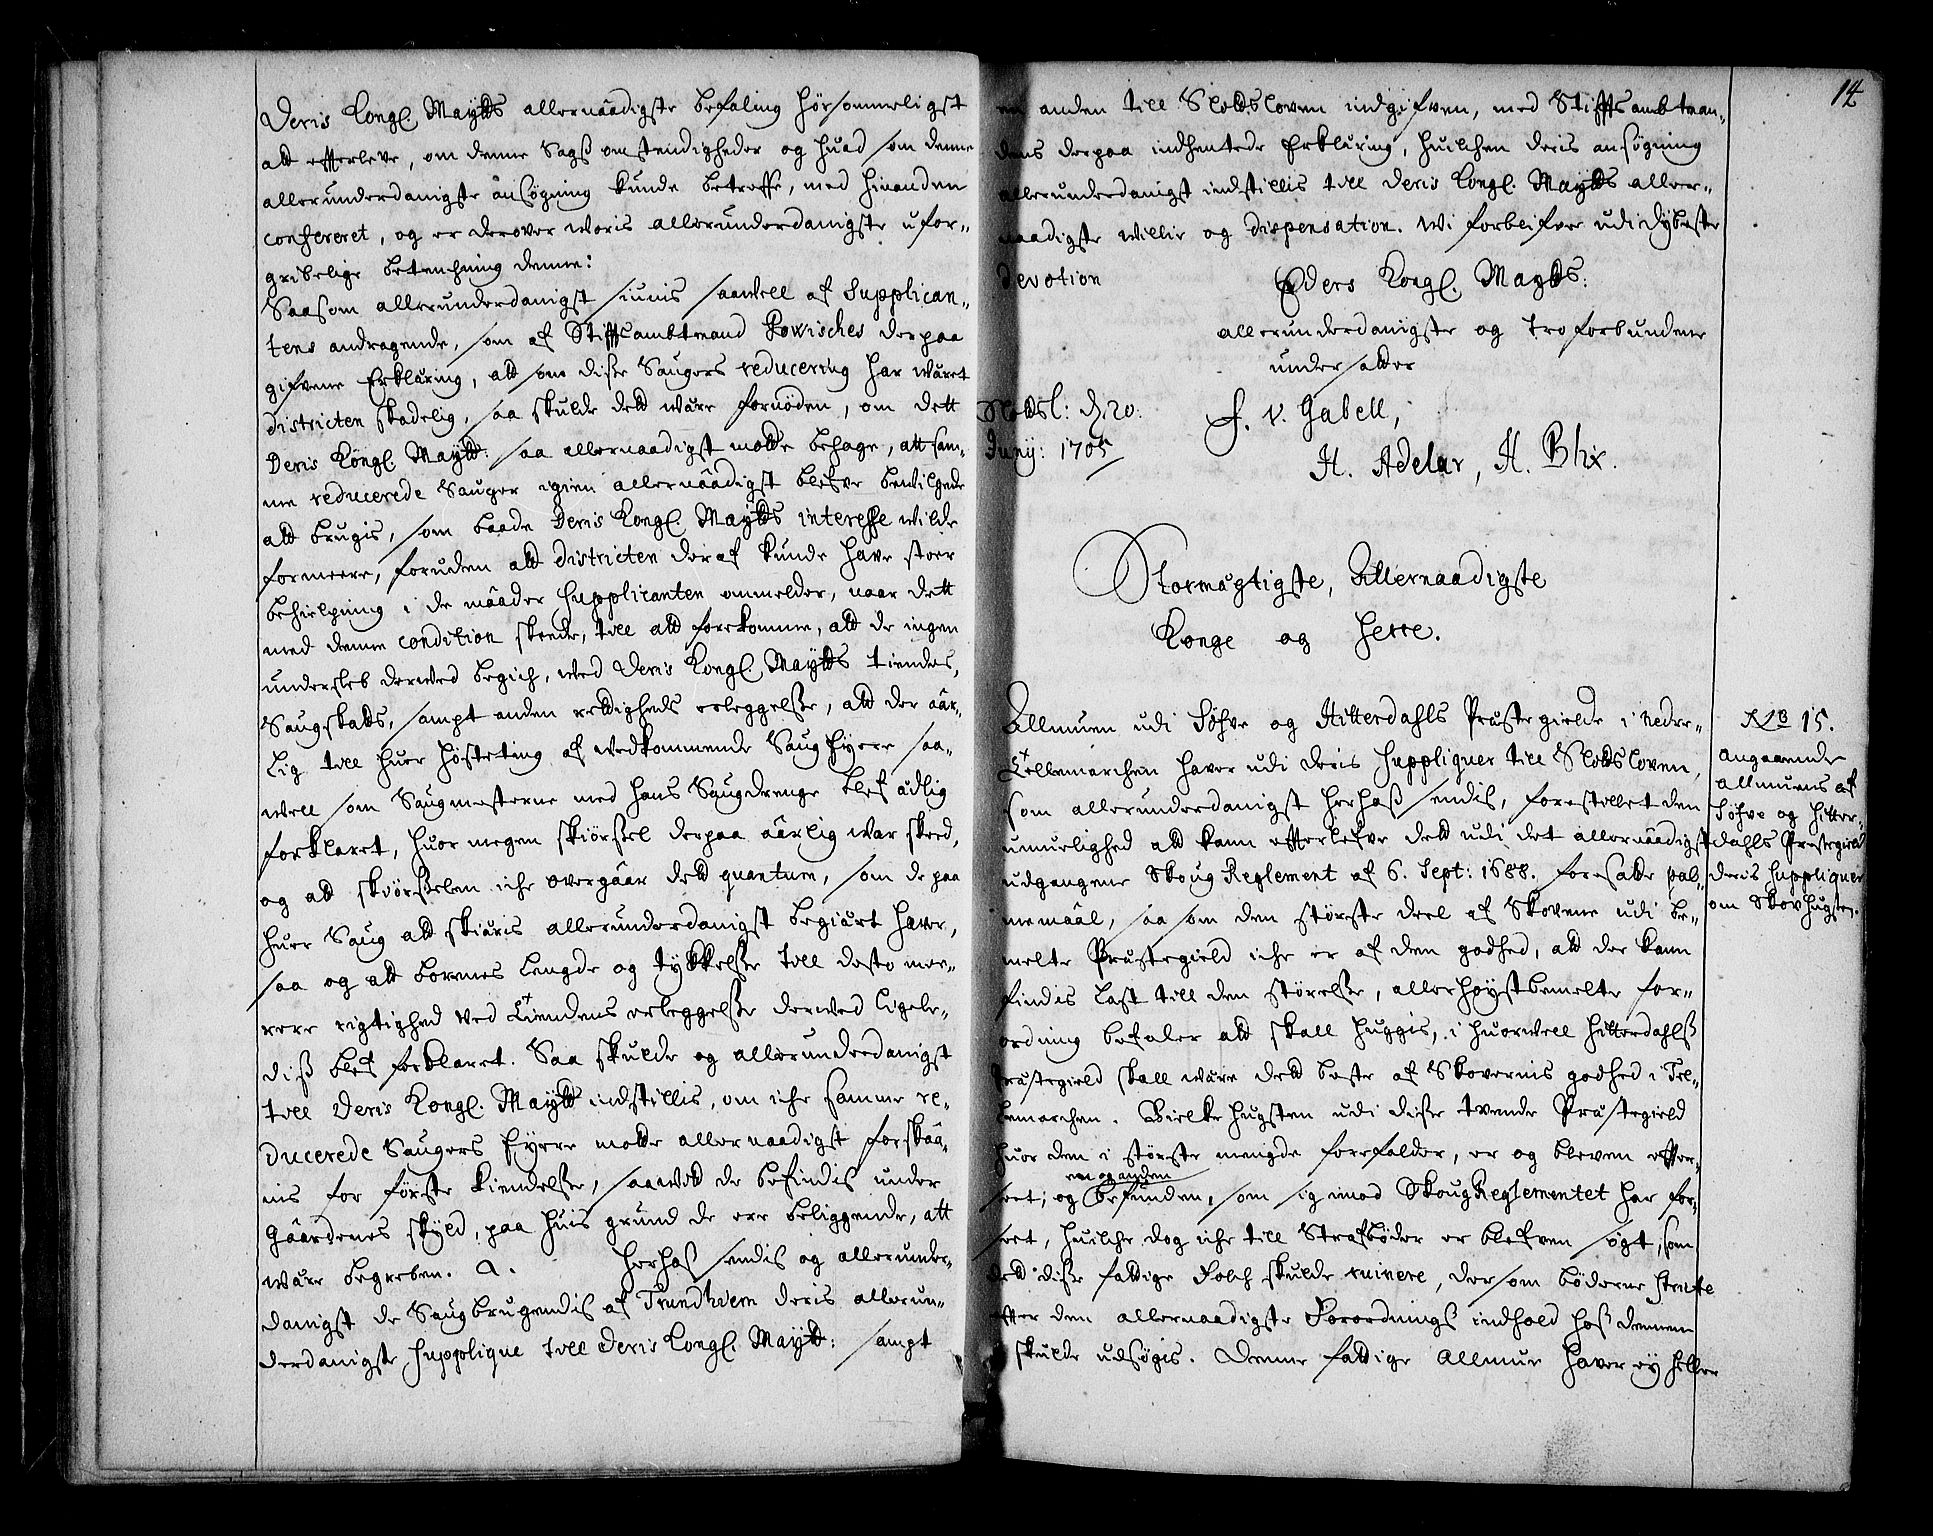 Deris Kongl. Maytts allernaadigste befaling hörsommeligst
att efterleve, om denne Sags omstendigheder og huad som denne
allerunderdanigste ansögning kunde betreffe, med hinanden
confereret, og er derover woris allerunderdanigste ufor-
gribelige betenchning denne:
Saasom allerunderdanigst siunis saavell af Supplican-
tens andragende, som af Stifftsambtmand Powisches derpaa
gifvene Erklæring, att som disse Saugers reducering har wæret
districten skadelig, saa skulde dett være fornöden, om dett
Deris Kongl. Maytt: saa allernaadigst motte behage, att sam-
me reducerede Sauger igien allernaadigst blefve bevilgede
att brugis, som baade Deris Kongl. Maytts interesse wilde
formeere, foruden att districten deraf kunde have stoer
behielpning i de maader Supplicanten ommelder, naar dett
med denne condition skeede, till att forekomme, att de ingen
undersleb derved begich, ved Deris Kongl. Maytts tiendes,
Saugskatts, sampt anden rettigheds erleggelse, att der aar-
lig till huer hösteting af vedkommende Saug Eyere saa-
well som Saugmesterne med hans Saugdrenge blef ædlig
forklaret, huor megen skiörsel derpaa aarlig war skeed,
og att skiörselen iche overgaar dett quantum, som de paa
huer Saug att skiæris allerunderdanigst begiært haver,
saa og att bordenes lengde og tykkelse till desto mee-
rere rigtighed ved Tiendens erleggelse derved ligele-
dis blef forklaret. Saa skulde og allerunderdanigst
till Deris Kongl. Maytt indstillis, om iche samme re-
ducerede Saugers Eyere motte allernaadigst forskaa-
nis for förste kiendelse, saavitt de befindis under
Gaardenes skyld, paa huis grund de ere beliggende, att
være begreben. A. herhos sendis og allerunder-
danigst de Saugbrugendis af Trundhiem deris allerun-
derdanigste Supplique till Deris Kongl. Maytt: sampt
14
en anden till Slottsloven indgifven, med Stifftsambtman-
dens derpaa indhentede Erklæring, huilchen deris ansögning
allerunderdanigst indstillis till Deris Kongl. Maytts aller-
naadigste villie og dispensation. Wi forblifver udi dybeste
devotion Eders Kongl. Maytts:
allerunderdanigste og troforbundene
undersatter
Slottsl: d. 20. F. v. Gabell,
Junij: 1705 H. Adelar, H. Blix.
Stormægtigste, Allernaadigste
Konge og Herre.
Allmuen udi Söfve og Hitterdahls Præstegielde i Neder-
Tellemarchen haver udi deris Suppliquer till Slottsloven,
som allerunderdanigst herhos sendis, forestillet den
umuelighed att kunn efterlefve dett udi det allernaadigst
udgangene Skoug Reglement af 6. Sept: 1688. foresatte pal-
memaal, saasom den störste deel af Skovene udi be-
melte Præstegield iche er af den godhed, att der kann
findis last till den störelse, allerhöystbemelte for-
ordning befaler att skall huggis, i huorvell Hitterdahls
Præstegield skall være dett beste af Skovernis godhed i Tel-
lemarchen. Bielke hugsten udi disse tvende Præstegield
huor den i störste mengde forefalder, er og bleven efter-
seet, og
en og anden
befunden, som sig imod Skoug Reglementet har for-
seet, huilche dog iche till Strafböder er blefven sögt, som
dett disse fattige Folch skulde ruinere, dersom böderne strax
efter den allernaadigste Forordnings indhold hos dennem
skulde udsögis. Denne fattige Allmue haver ey heller
No 15.
Angaaende
Allmuens af
Söfve og Hitter-
dahls Præstegield
deris Suppliquer
om Skovhugsten.